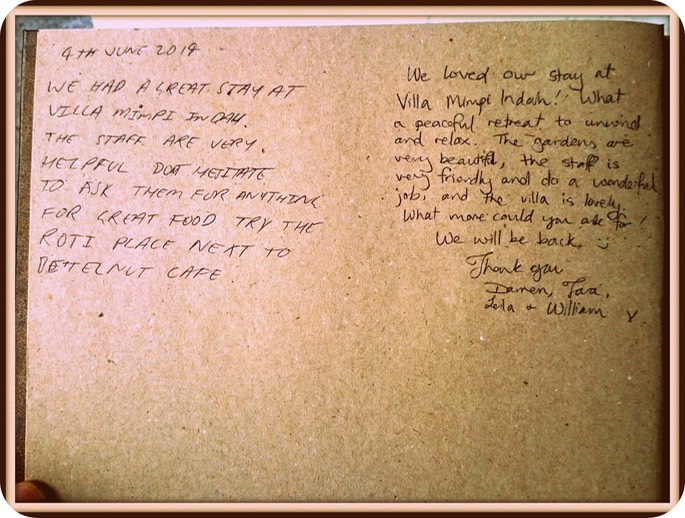 4TH JUNE 2014
WE HAD A GREAT STAY AT
VILLA MIMPI INDAH.
THE STAFF ARE VERY.
HELPFUL DOT HETITATE
TO ASK THEM FOR ANYTHING
FOR GREAT FOOD TRY THE
ROTI PLACE NEXT TO
BETTELNUT CAFE
We loved our stay at
Villa Mimpi Indah! What
a peaceful retreat to unwind
and relax. The gardens are
very beautiful, the staff is
very friendly and do a wonderful
job, and the villa is lovely.
What more could you ask for!
We will be back :)
Thank you
Darren, Tara,
Leila + William x